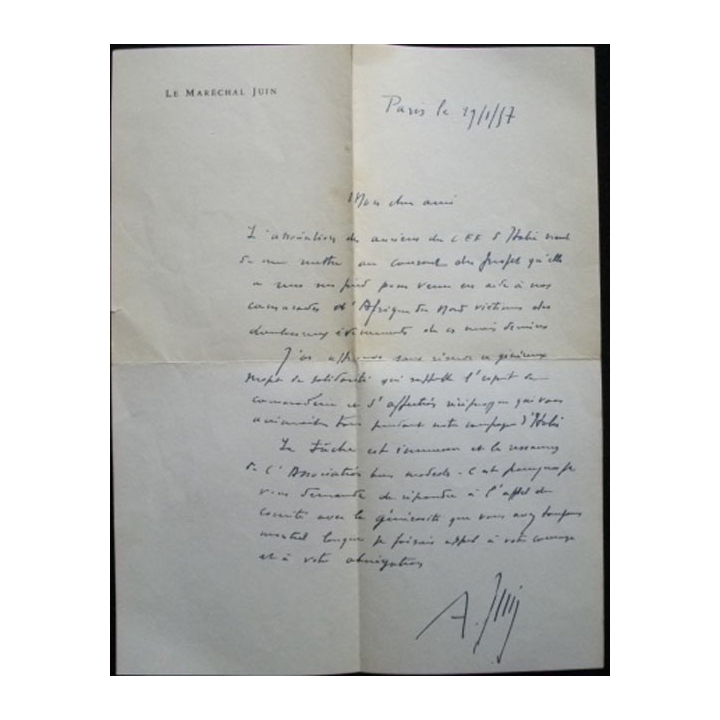 LE MARÉCHAL JUIN
Paris le 29/1/57
Mon cher ami
L'association des anciens du CEF d'Italie vient
de me mettre au courant du projet qu'elle
a mis sur pied pour venir en aide à nos
camarades d'Afrique du Nord victimes des
douloureux évènements de ces mois derniers
J'ai approuvé sans réserve ce généreux
projet de solidarité qui rappelle l'esprit de
camaraderie et d'affection réciproque qui vous
animait tous pendant notre campagne d'Italie
La tâche est immense et les ressources
de l'Association bien modestes. C'est pourquoi je
vous demande de répondre à l'appel du
comité avec la générosité que vous avez toujours
montré lorsque je faisais appel à votre courage
et à votre abnégation
A. Juin